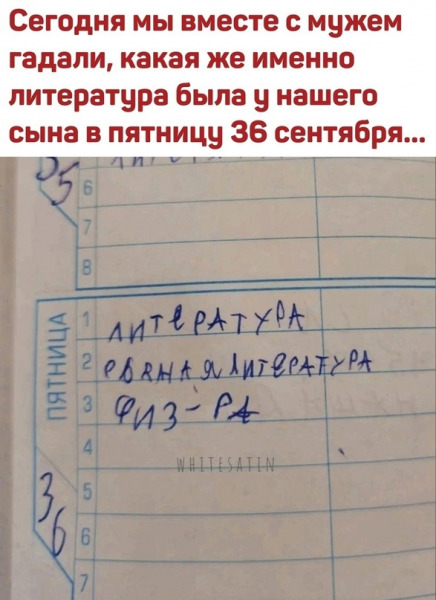 Сегодня мы вместе с мужем
гадали, какая же именно
литература была у нашего
сына в пятницу 36 сентября...
35
6
7
8
ПЯТНИЦА
1 ЛИТЕРАТУРА
2 РВАНАЯ ЛИТЕРАТУРА
3 ФИЗ-РА
4
WHITESATIN
36
5
6
7